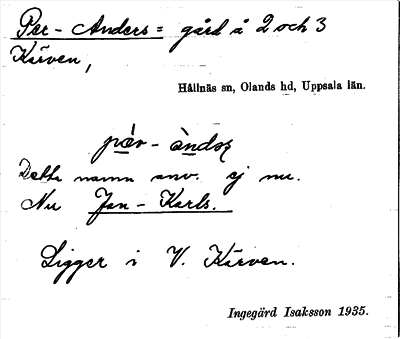 Per - Anders = gård å 2 och 3
Kärven,
Hållnäs sn, Olands hd, Uppsala län.
Detta namn anv. ej nu.
Nu Jan - Karls.
Ligger i V. Kärven.
Ingegärd Isaksson 1935.